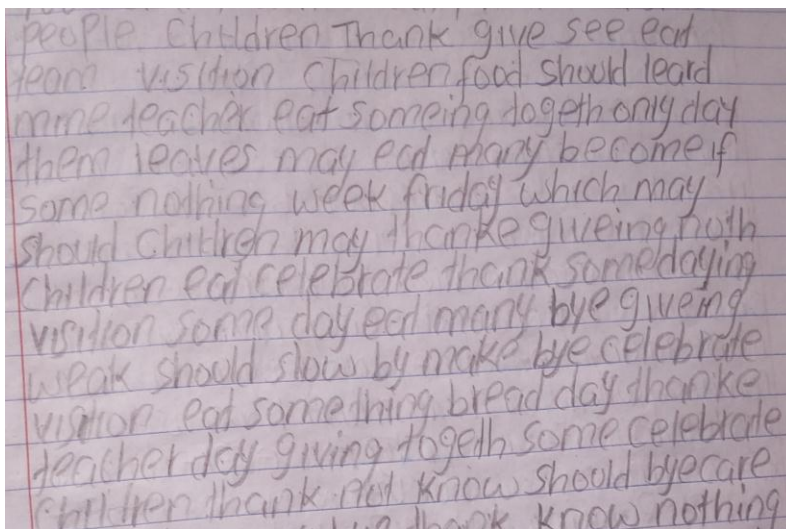 people. Children Thank give see eat
team visition children food should leard
mme teacher eat someing togeth only day
them leaves may eat many become if
some nothing week friday which may
should children may thanke giveing noth
children eat celebrate thank somedaying
visition some day eat many bye giveing
weak should slow by make bye celebrate
visition eat something bread day thanke
teacher day giving togeth some celebrate
children thank not know should bye care
thank know nothing